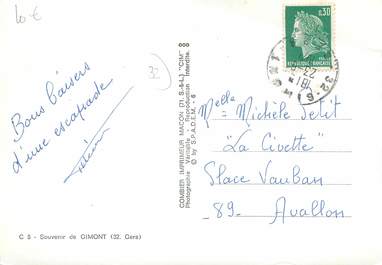 10 €
32
0,30
RÉPUBLIQUE FRANÇAISE
32-G
Bons baisers
d'une escapade
COMBIER IMPRIMEUR MACON (71, S.-&-L.) "CIM"
Photographie Véritable - Reproduction Interdite.
© by S.P.A.D.E.M. - 6
Melle Michèle Petit
"La Civette"
Place Vauban
-89- Avallon
C 5 - Souvenir de GIMONT (32. Gers)